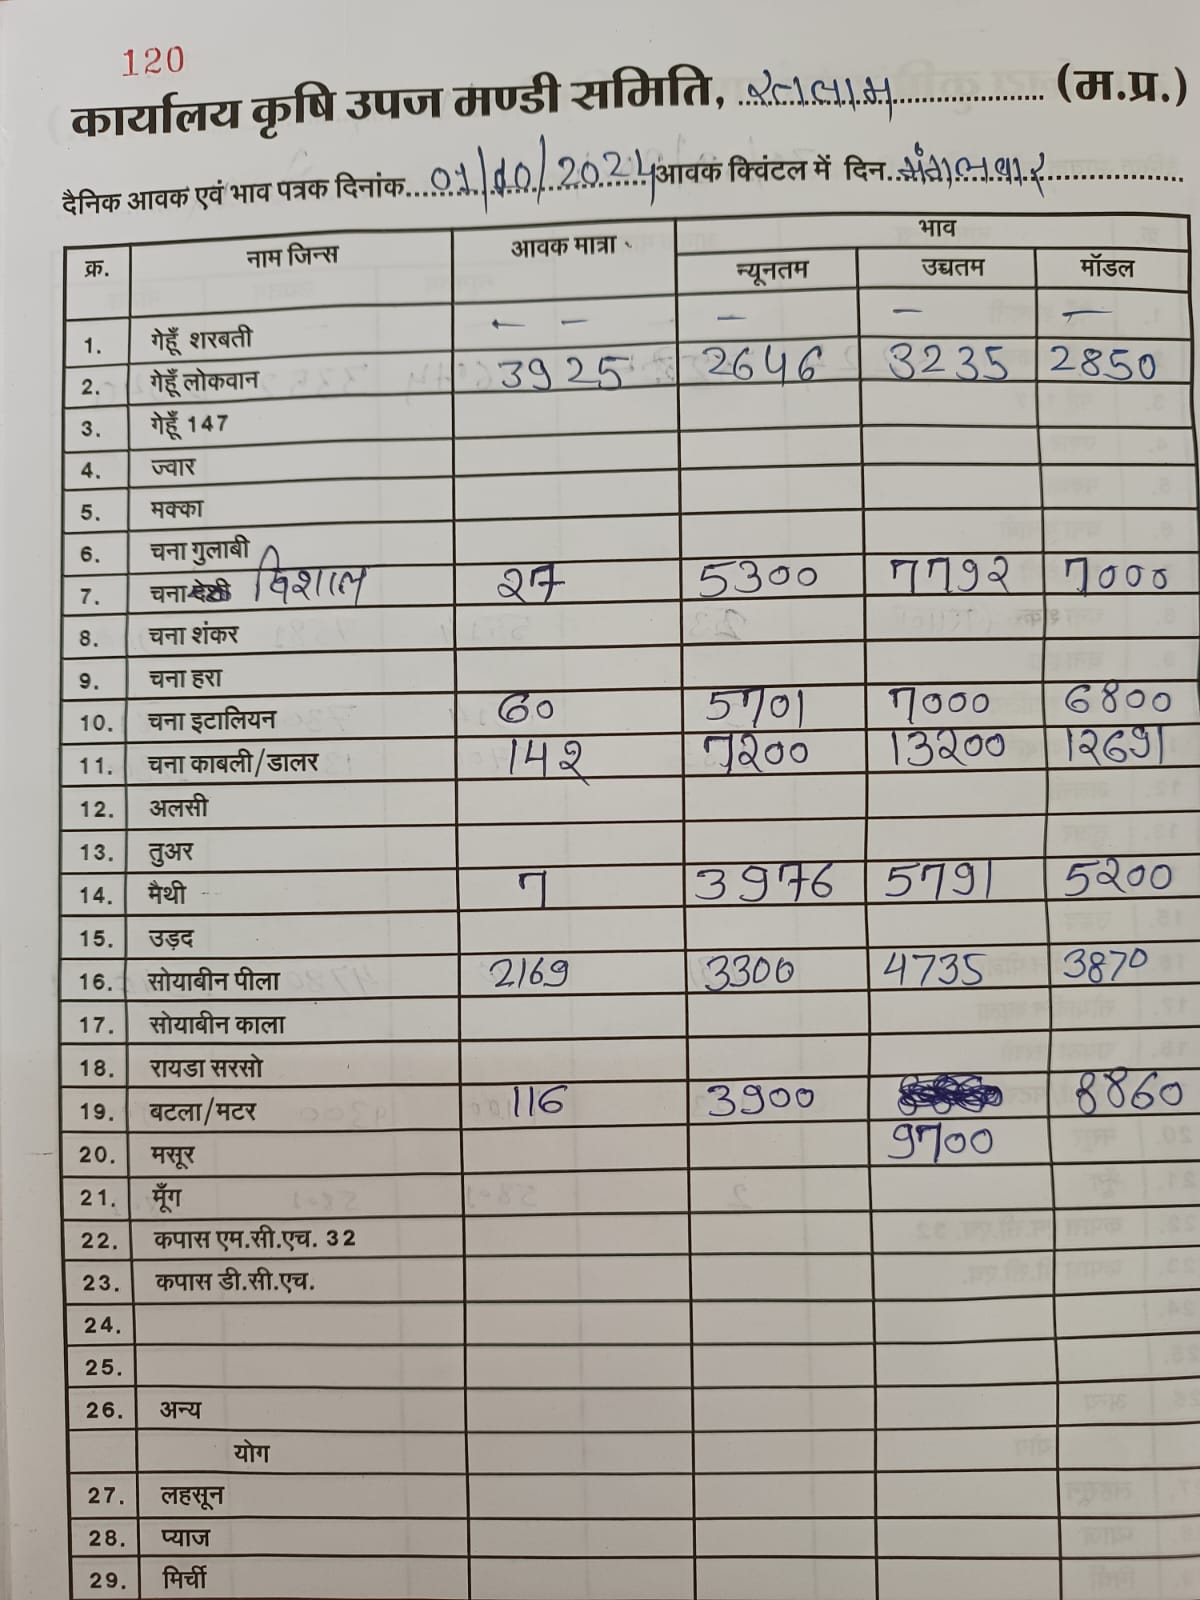 120
कार्यालय कृषि उपज मण्डी समिति, रतलाम (म.प्र.)
दैनिक आवक एवं भाव पत्रक दिनांक 01/10/2024 आवक क्विंटल में दिन मंगलवार
क्र. नाम जिन्स आवक मात्रा भाव
न्यूनतम उच्चतम मॉडल
1. गेहूँ शरबती - - - - -
2. गेहूँ लोकवान 3925 2646 3235 2850
3. गेहूँ 147
4. ज्वार
5. मक्का
6. चना गुलाबी
7. चना विशाल 27 5300 7792 7000
8. चना शंकर
9. चना हरा
10. चना इटालियन 60 5701 7000 6800
11. चना काबली/डालर 142 7200 13200 12691
12. अलसी
13. तुअर
14. मैथी 7 3976 5791 5200
15. उड़द
16. सोयाबीन पीला 2169 3300 4735 3870
17. सोयाबीन काला
18. रायडा सरसो
19. बटला/मटर 116 3900 8860
20. मसूर 9700
21. मूँग
22. कपास एम.सी.एच. 32
23. कपास डी.सी.एच.
24.
25.
26. अन्य
योग
27. लहसून
28. प्याज
29. मिर्ची